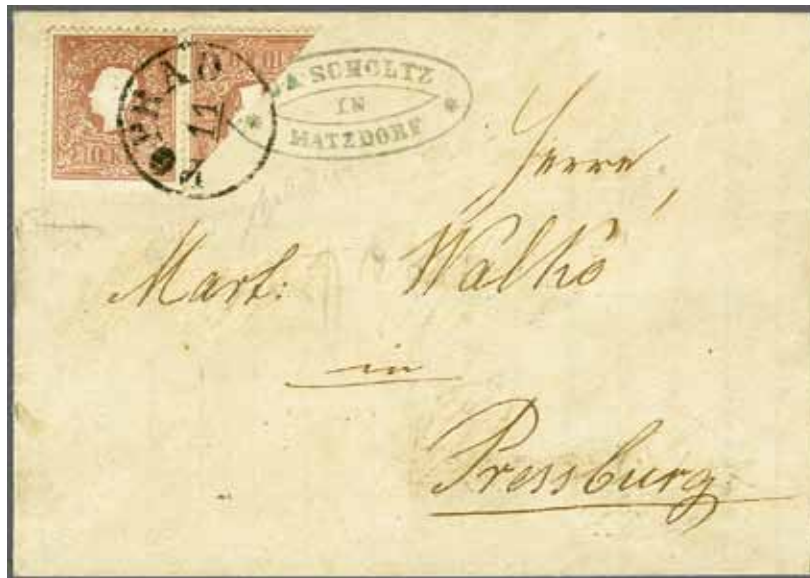 10 K
PRAD
11
SCHOLTZ
IN
MATZDORF
Herrn
Mart: Walko
in
Pressburg